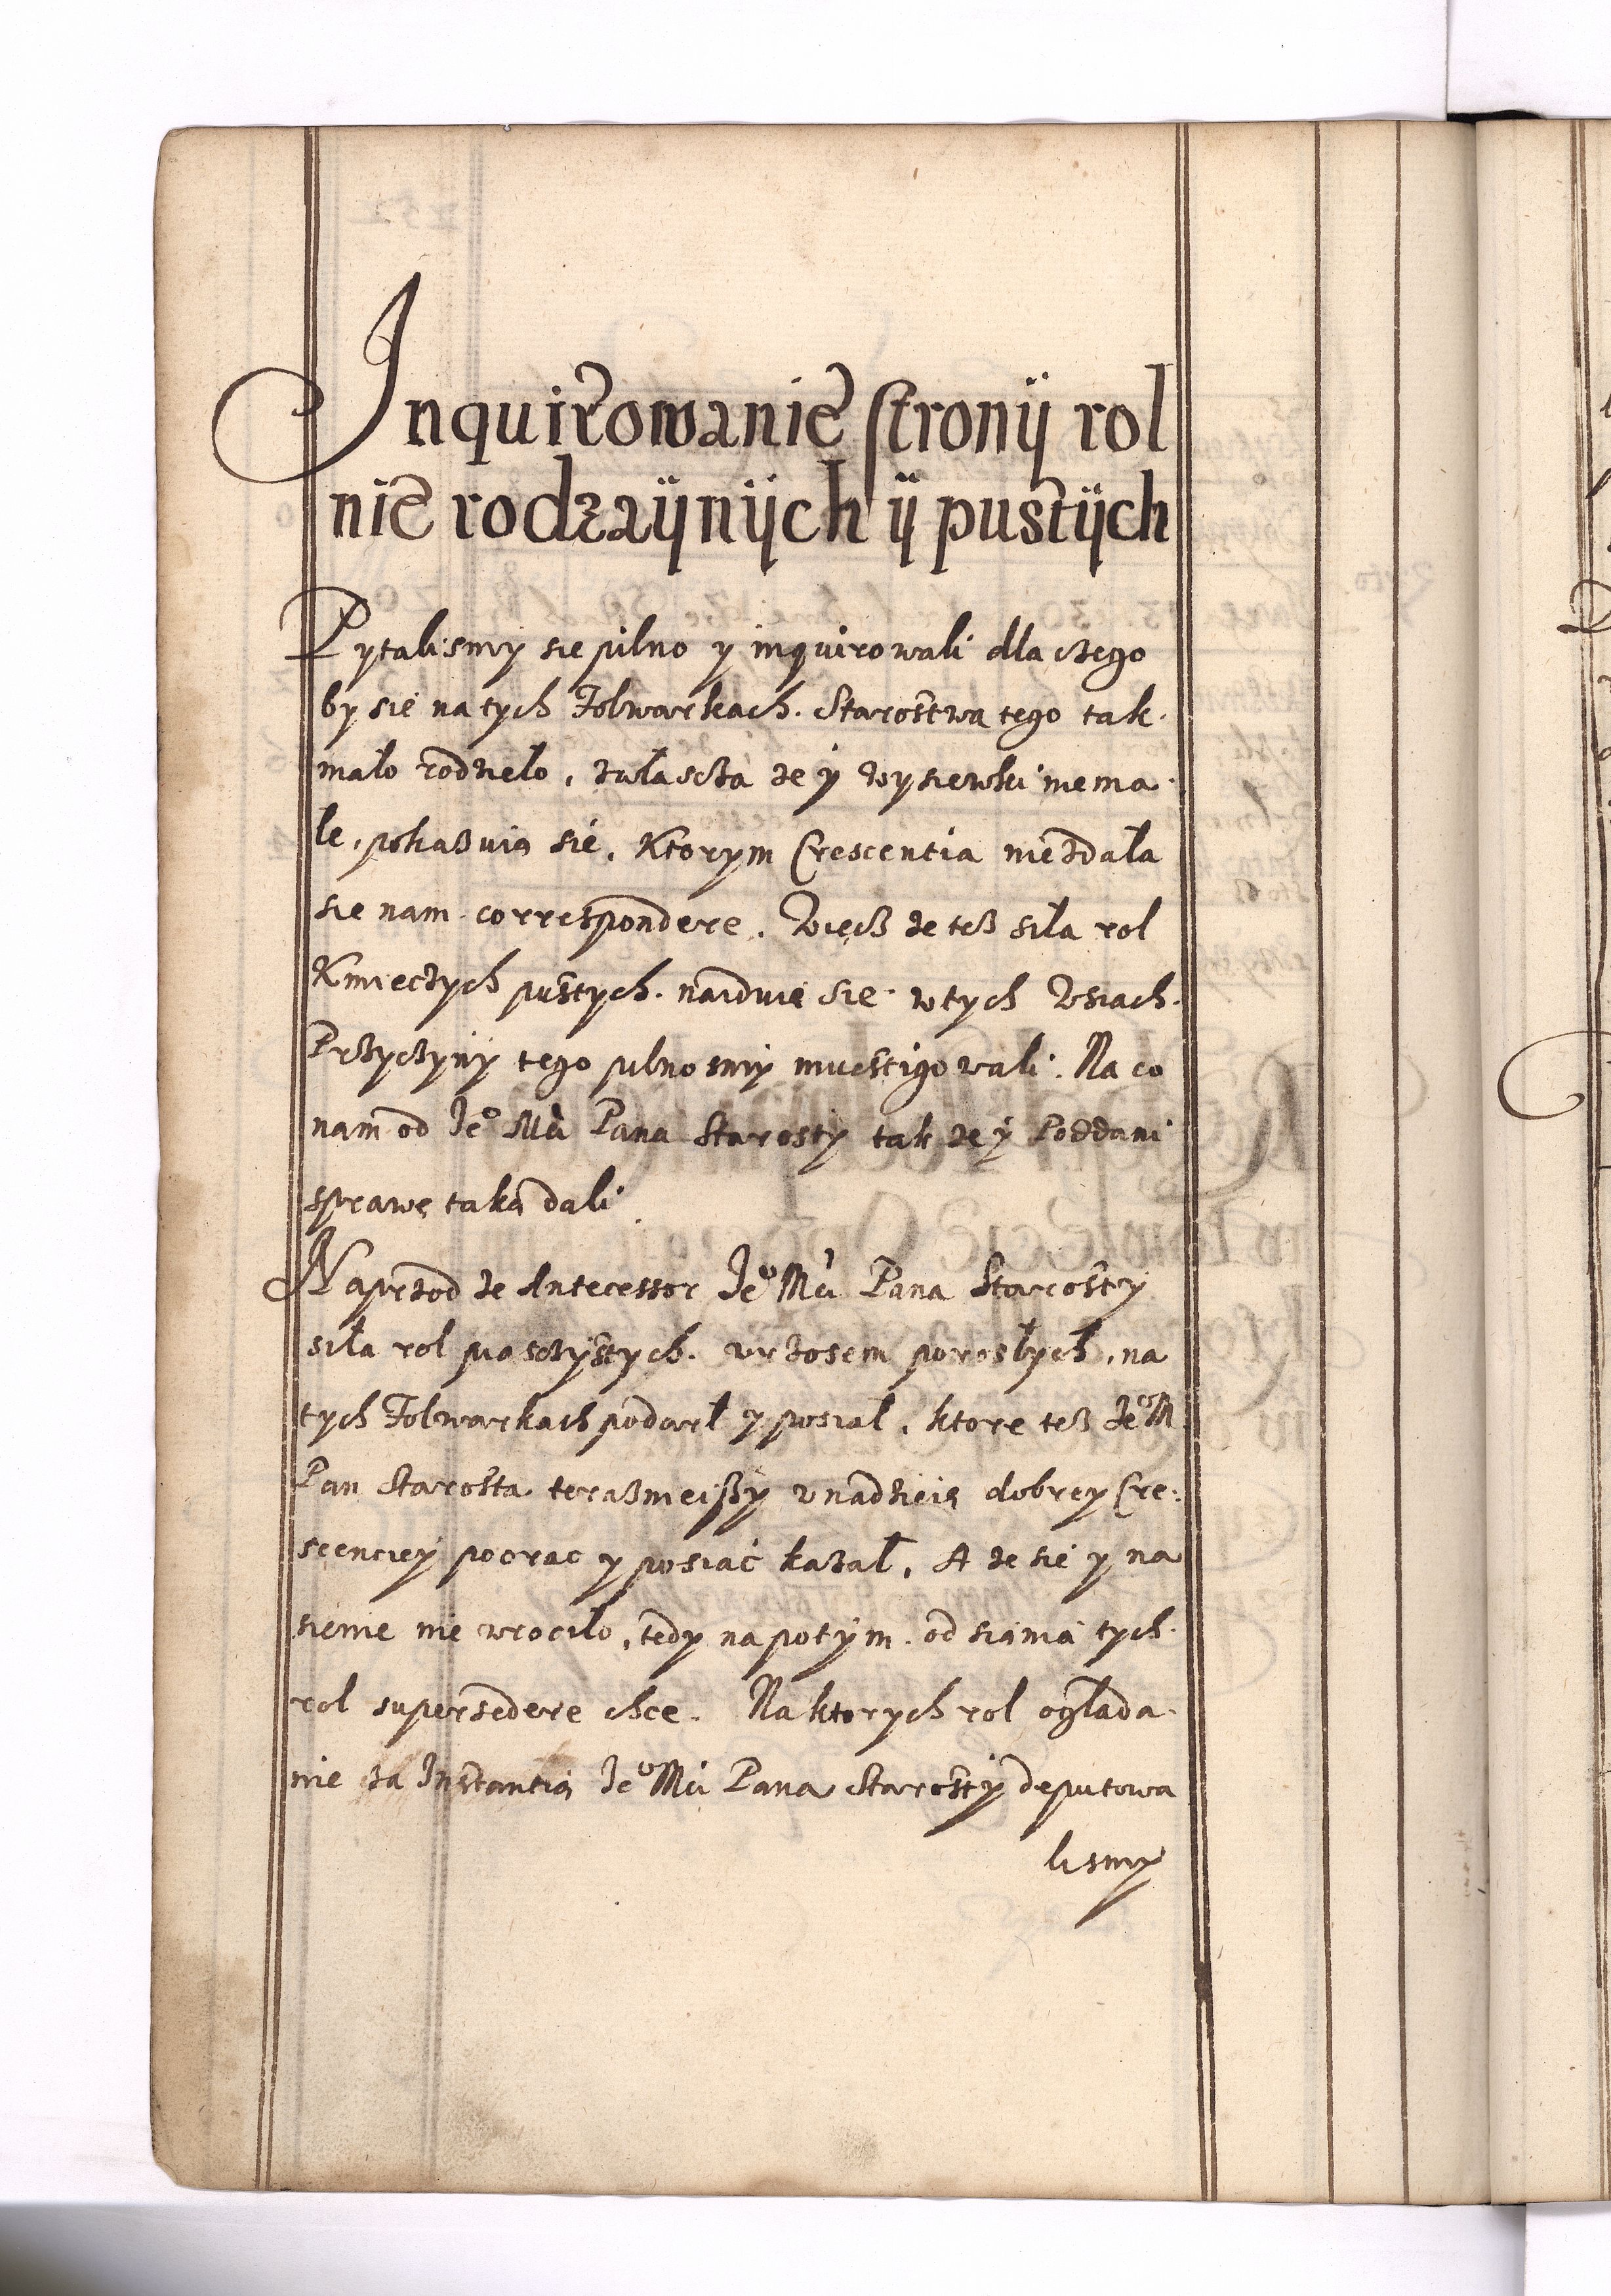 Inquirowanie stronÿ rol
nie rodzaÿnÿch ÿ pustÿch
Pytalismy sie pilno y inquirowali dla czego
by sie na tych Folwarkach. Starostwa tego tak
mało rodzieło, zwłascza ze y wysiewki niema
łe, pokaßuią sie, Ktorym Crescentia niezdała
sie nam correspondere. Więcß ze teß siła rol
Kmieczych pustych naiduie sie w tych Wsiach.
Przyczyny tego pilno smy inuestigowali. Na co
nam od Je° Mci Pana Starosty tak ze y Poddani
sprawę taką dali
Naprzod ze Antecessor Je° Mci Pana Starosty
siła rol piasczystych. wrzosem porosłych, na
tych Folwarkach podarł y posiał, ktore teß Je° M
Pan Starosta teraßnieißy w nadzieię dobrey Cre:
scenciey poorac y posiać kazał, A ze sie y na
sienie nie wrociło, tedy na potym od siania tych
rol supersedere chce. Na ktorych rol oglada
nie za Instantią Je° Mci Pana Starosty deputowa
lismy